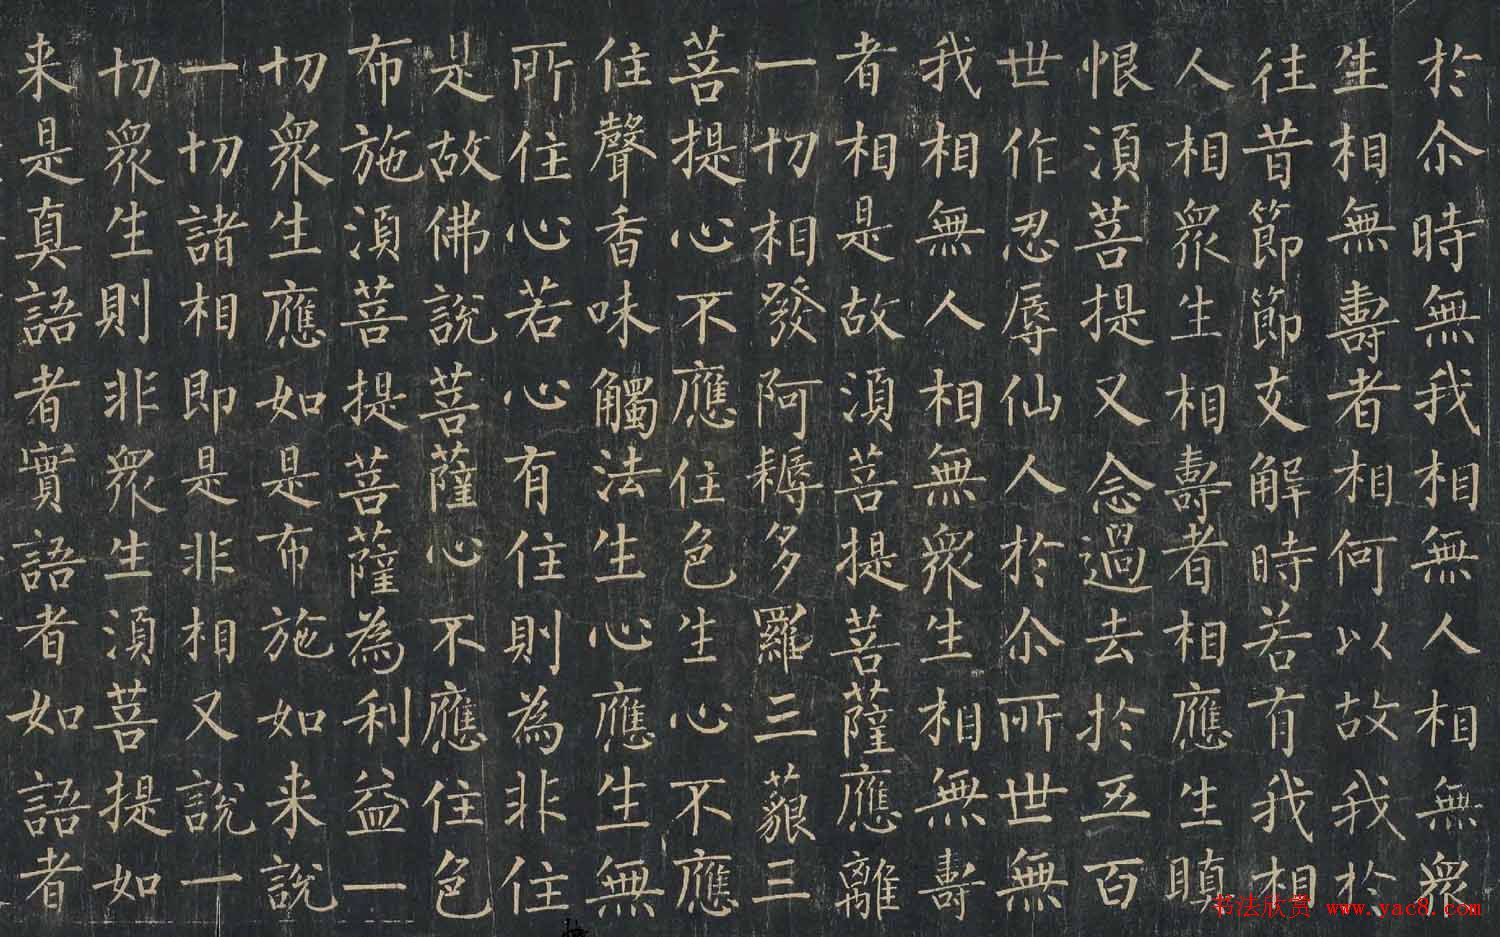 於尒時無我相無人相無眾
生相無壽者相何以故我於
往昔節節支解時若有我相
人相眾生相壽者相應生瞋
恨須菩提又念過去於五百
世作忍辱仙人於尒所世無
我相無人相無眾生相無壽
者相是故須菩提菩薩應離
一切相發阿耨多羅三藐三
菩提心不應住色生心不應
住聲香味觸法生心應生無
所住心若心有住則為非住
是故佛說菩薩心不應住色
布施須菩提菩薩為利益一
切眾生應如是布施如来說
一切諸相即是非相又說一
切眾生則非眾生須菩提如
来是真語者實語者如語者
书法欣赏 www.yac8.com